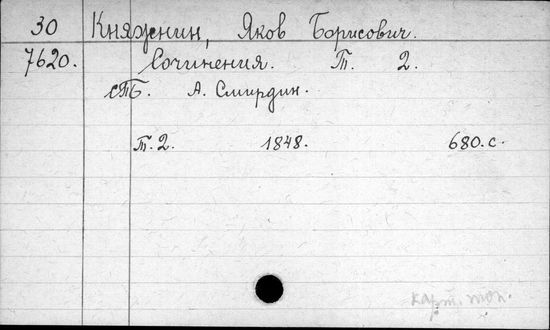 30 Княжнин, Яков Борисович.
7620. Сочинения. Т. 2.
СПБ. А. Смирдин.
Т. 2. 1848. 680. с.
карт. топ.